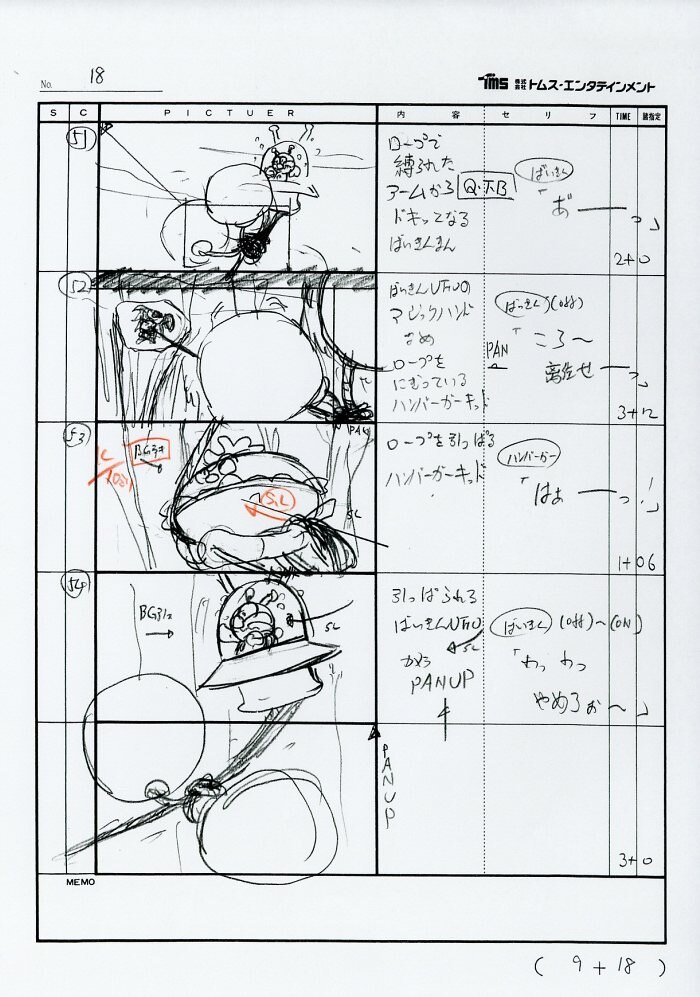 No. 18
TMS 株式会社 トムス・エンタテインメント
S C PICTUER 内容 セリフ TIME
51
ロープで
縛られた
アームから Q.T.B
ドキッてなる
ばいきんまん
ばいきん
「あ──っ」
2+0
52
ばいきんUFOの
マジックハンド
なめ
ロープを
にぎっている
ハンバーガーキッド
PAN
ばいきん (off)
「こら〜
離せ──っ」
3+12
53
BG引き
(S,L)
PAN
SL
ロープを引っぱる
ハンバーガーキッド
ハンバーガー
「はぁ──っ!」
1+06
54
BG引き
SL
引っぱられる
ばいきんUFO
SL
から
PANUP
ばいきん (off)〜(ON)
「わっ わっ
やめろぉ〜」
PANUP
3+0
MEMO
( 9 + 18 )